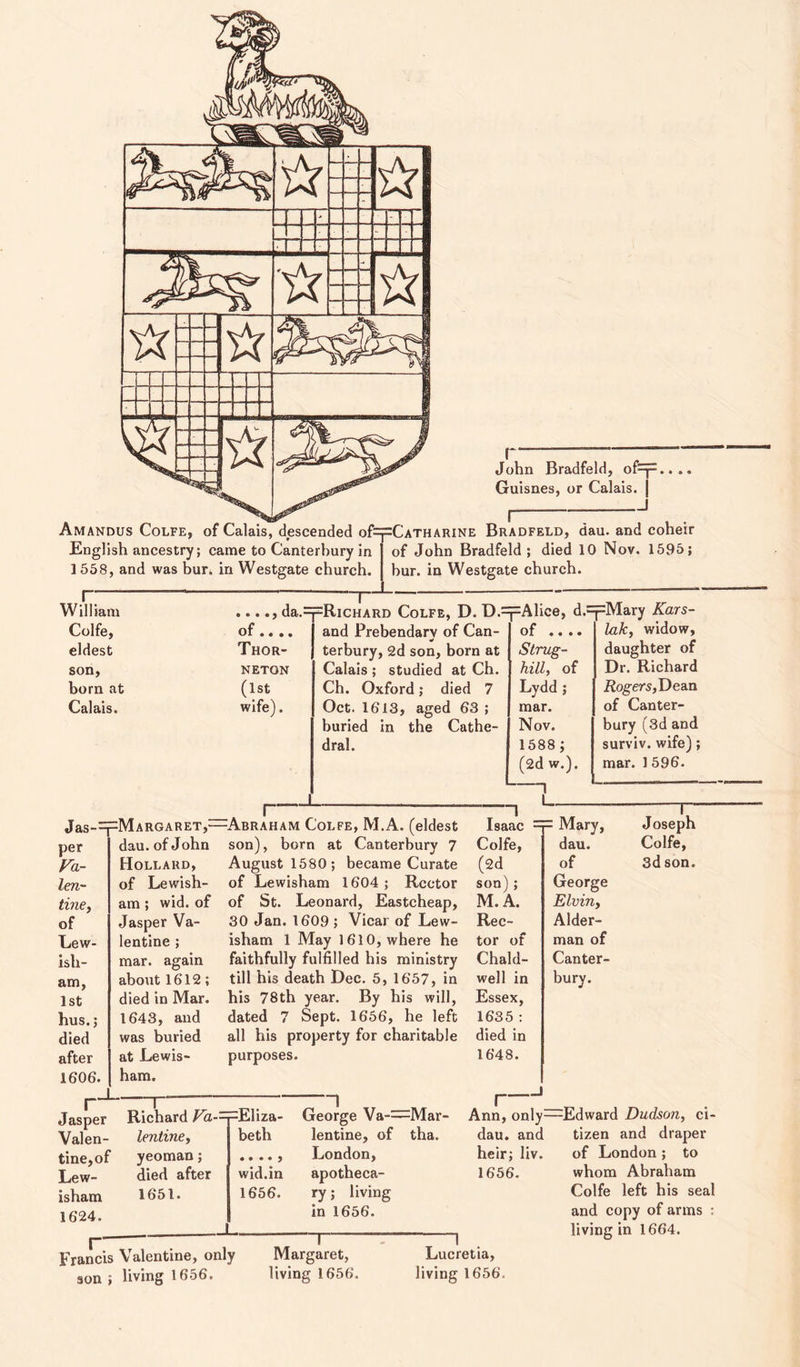 John Bradfeld, of=....
Guisnes, or Calais.
Amandus Colfe, of Calais, descended of=Catharine Bradfeld, dau. and coheir
English ancestry; came to Canterbury in
1558, and was bur. in Westgate church.
of John Bradfeld; died 10 Nov. 1595;
bur. in Westgate church.
William
Colfe,
eldest
son,
born at
Calais.
...., da.=
of ....
Thor-
neton
(1st
wife).
Richard Colfe, D. D.=
and Prebendary of Can-
terbury, 2d son, born at
Calais; studied at Ch.
Ch. Oxford; died 7
Oct. 1613, aged 63;
buried in the Cathe-
dral.
Alice, d.=
of ....
Strug-
hill, of
Lydd;
mar.
Nov.
1588;
(2d w.).
Mary Kars-
lak, widow,
daughter of
Dr. Richard
Rogers, Dean
of Canter-
bury (3d and
surviv. wife);
mar. 1596.
Jas-=
per
Va-
len-
tine,
of
Lew-
ish-
am,
1st
hus.;
died
after
1606.
Margaret,=
dau. of John
Hollard,
of Lewish-
am; wid. of
Jasper Va-
lentine;
mar. again
about 1612;
died in Mar.
1643, and
was buried
at Lewis-
ham.
Abraham Colfe, M.A. (eldest
son), born at Canterbury 7
August 1580; became Curate
of Lewisham 1604; Rector
of St. Leonard, Eastcheap,
30 Jan. 1609; Vicar of Lew-
isham 1 May 1610, where he
faithfully fulfilled his ministry
till his death Dec. 5, 1657, in
his 78th year. By his will,
dated 7 Sept. 1656, he left
all his property for charitable
purposes.
Isaac =
Colfe,
(2d
son);
M. A.
Rec-
tor of
Chald-
well in
Essex,
1635:
died in
1648.
Mary,
dau.
of
George
Elvin,
Alder-
man of
Canter-
bury.
Joseph
Colfe,
3d son.
Jasper
Valen-
tine, of
Lew-
isham
1624.
Richard Va-=
lentine,
yeoman;
died after
1651.
Eliza-
beth
....,
wid. in
1656.
George Va-=
lentine, of
London,
apotheca-
ry; living
in 1656.
Mar-
tha.
Ann, only=
dau. and
heir; liv.
1656.
Edward Dudson, ci-
tizen and draper
of London; to
whom Abraham
Colfe left his seal
and copy of arms:
living in 1664.
Francis Valentine, only
son; living 1656.
Margaret,
living 1656.
Lucretia,
living 1656.